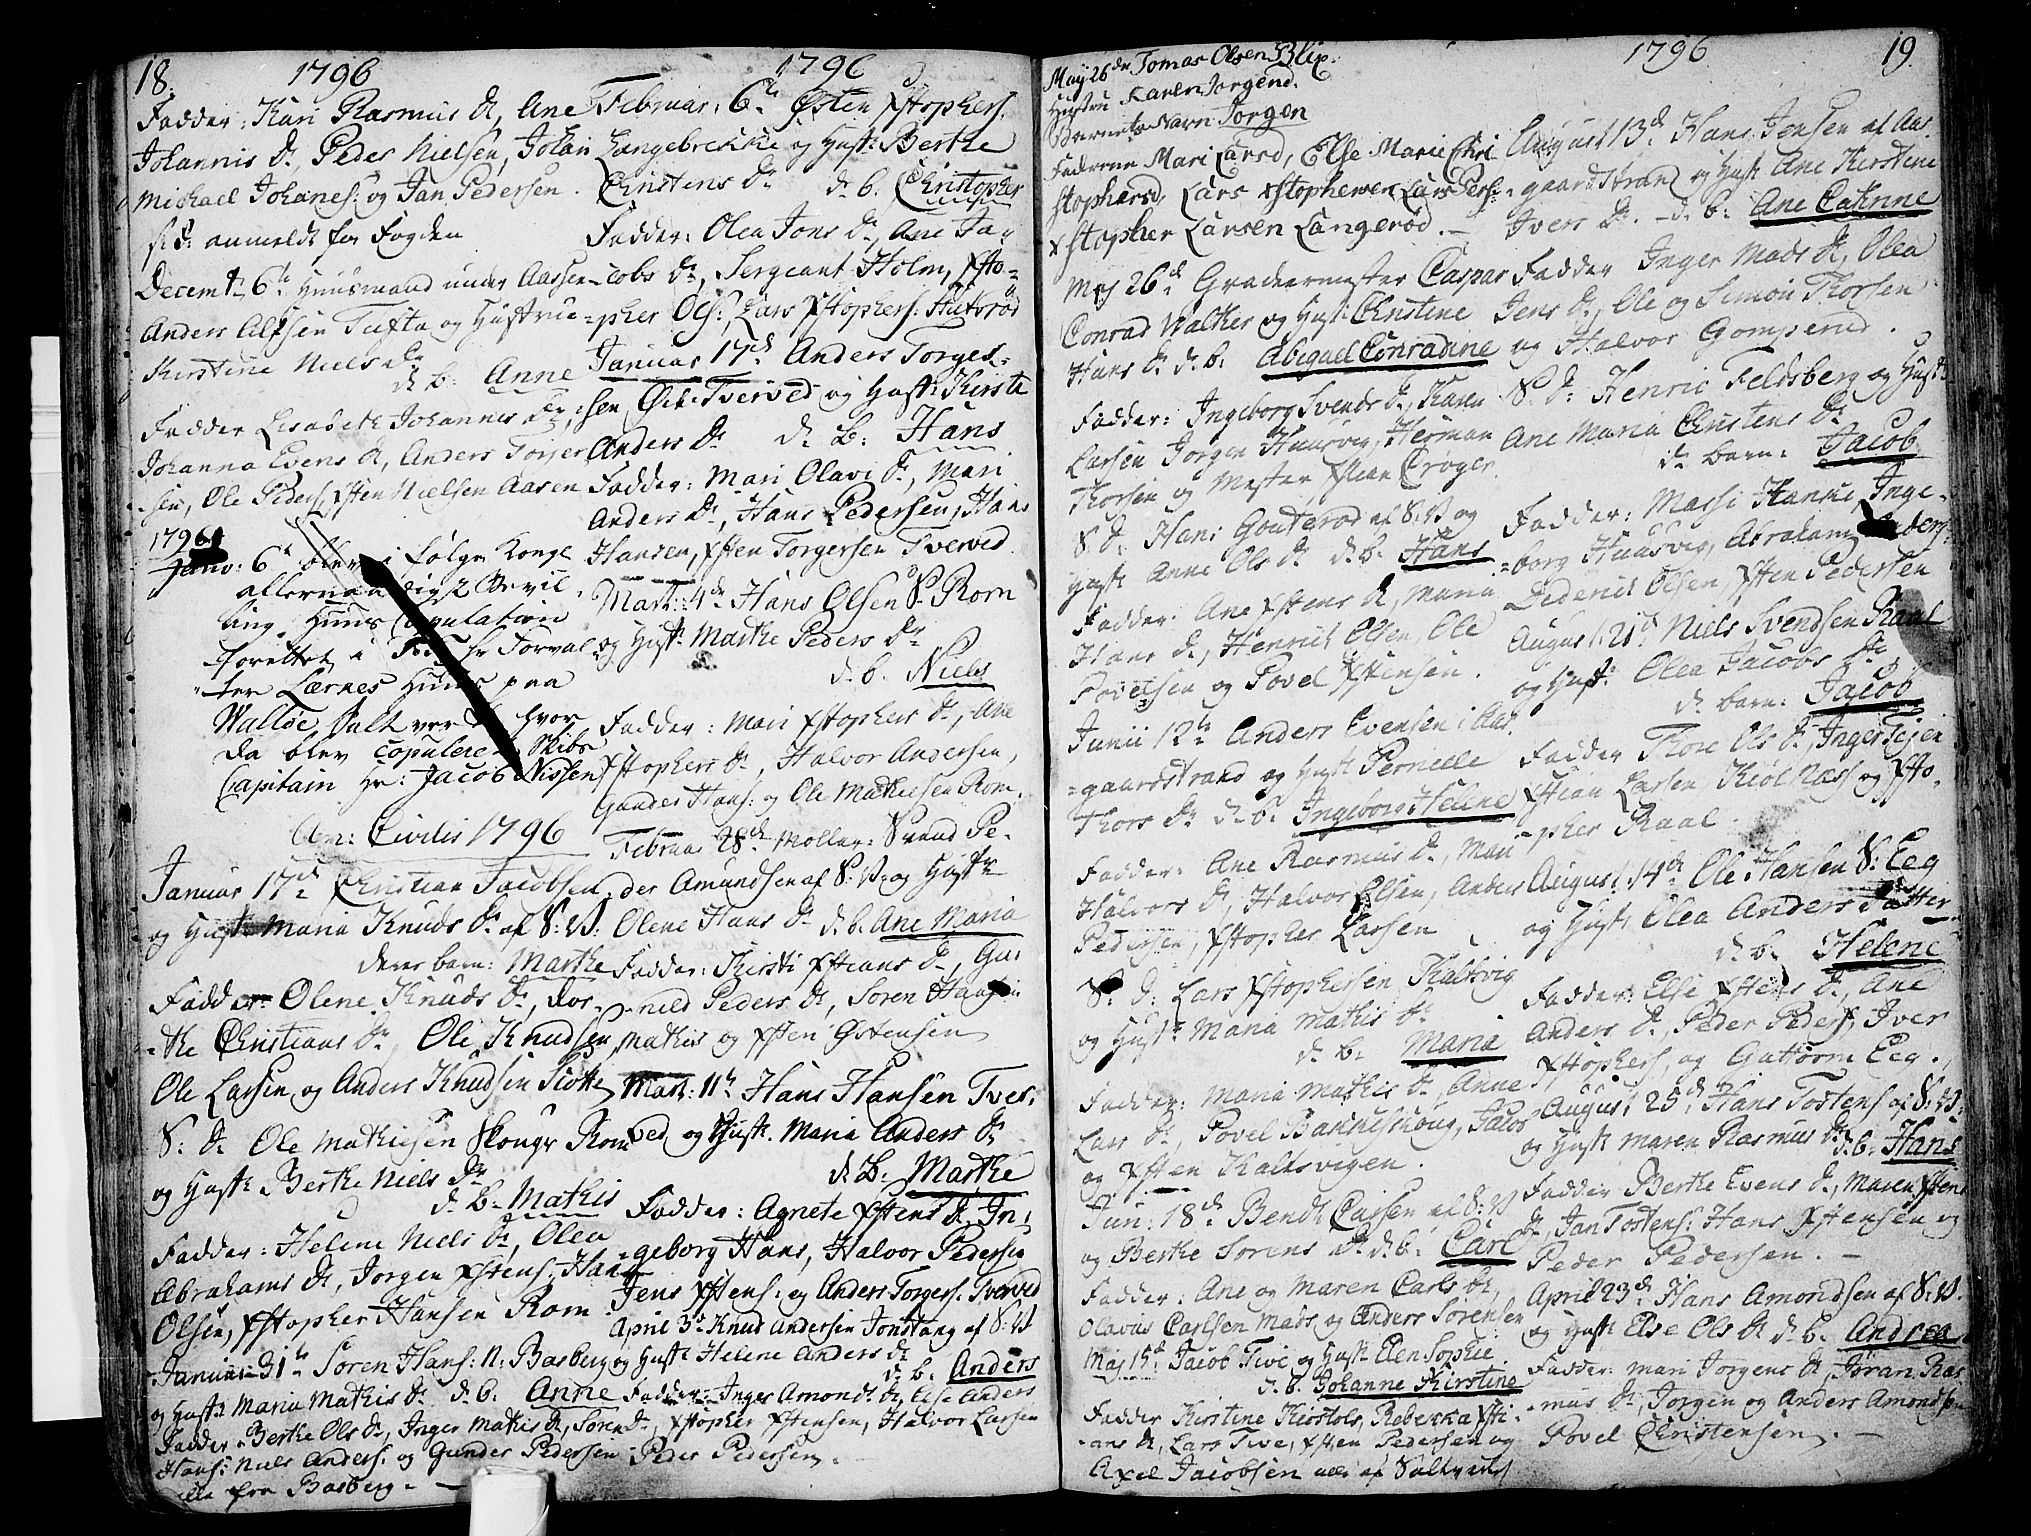 18. 1796
Fadder: Kari Rasmus dr, Ane
Johannis dr. Peder Nielsen, Johan
Michael Johanes: og Jan Pedersen.
anmeldt for Fogden
Decembr 6te Huusmand under Aasen
Anders Tufta og Hustrue
Kirstine Niels dr
d: b: Anne
Fadder Lisabeth Johannis dr,
Johanna Evens dr, Anders Torjer
sen, Ole Peders: Xsten Nielsen Aasen
1796
Janv: 6te blev i følge Konge
allernaadigste Bevil
ling, Huus Copulation
forettet i Forval
ter Lærnes Huus paa
Walløe Salt verk hvor
da blev copuleret Skibs
Capitain Hr: Jacob Nissen
An: Civilis 1796
Januar 17de Christian Jacobsen
og Hust: Maria Knuds dr af S: V:
deres barn: Marthe
Fadder: Olene Knuds dr, Dor-
the Christians dr, Ole Knudsen
Ole Larsen og Anders Knudsen
S: d: Ole Mathiesen Skouge Rom
og Hust: Berthe Niels dr
d: b: Mathis
Fadder: Helene Niels dr, Olea
Abrahams dr, Jorgen Xstens: Hans
Olsen, Xstopher Hansen Rom.
Januarii 31te Soren Hans: N: Basberg
og Hust: Maria Mathis dr d: b: Anne
Fadder: Berthe Ols dr, Inger Mathis dr, Soren
Hans: Niels Anders: og Gunder Pedersen
alle fra Basberg.
1796
Februar: 6te Østen Xstophers:
Langebrekke og Hust: Berthe
Christens dr d: b: Christopher
Fadder: Olea Jons dr, Ane Ja-
cobs dr, Sergeant Holm, Xsto-
pher Ols:, Lars Xstophers: Hutsrød
Januar 17de Anders Torges-
sen Tverved og Hust: Kirste
Anders dr d: b: Hans
Fadder: Mari Olavi dr, Mari
Anders dr, Hans Pedersen, Hans
Hansen, Xsten Torgersen Tverved.
Mart: 4de Hans Olsen S: Rom
og Hust: Marthe Peders dr
d: b: Niels
Fadder: Mari Xstophers dr, Ane
Xstophers dr, Halvor Andersen,
Gunder Hans: og Ole Mathiesen Rom.
Februar 28de Møller: Svend Pe-
der Amundsen af S: V: og Hustr
Olene Hans dr d: b: Ane Maria
Fadder: Kirsti Xstians dr, Gu-
nild Peders dr, Soren Hansen
Mathis og Xsten Østensen
Mart: 11te Hans Hansen Tver-
ved og Hust: Maria Anders dr
d: b: Marthe
Fadder: Agnete Xstens dr, In-
geborg Hans, Halvor Pedersen
Jens Xstens: og Anders Torgers: Tverved
April 3de Knud Andersen Jonstang af S: V
og Hust: Helene Anders dr
d: b: Anders
Fadder: Inger Amonds dr, Else Anders
dr, Xstopher Xstensen, Halvor Larsen
Peder Pedersen.
May 26de Tomas Olsen Blix.
Hustru Karen Jorgend.
Barnets Navn Jorgen
Fadderne Mari Larsd, Else Marie Chri
stophersd, Lars Xstophersen Lars Pers:
Xstopher Larsen Langerød.
Maj 26de Gradeermester Caspar
Conrad Walker og Hust: Christine
Hans dr d: b: Abigael Conradine
Fadder: Ingeborg Svends dr, Karen
Larsen Jorgen Huusvig, Herman
Thorsen og Mester Xstian Crøger
S: d: Hans Gouterød af S: V og
Hust: Anne Ols dr d: b: Hans
Fadder: Ane Xstens dr, Maria
Hans dr, Henrik Olsen, Ole
Povelsen og Povel Xstensen.
Junii 12te Anders Evensen i Aas-
gaardstrand og Hust: Pernelle
Thors dr d: b: Ingeborg Helene
Fadder: Ane Rasmus dr, Mari
Halvors dr, Halvor Olsen, Anders
Pedersen, Xstopher Larsen
S: d: Lars Xstophersen Kaltsvig
og Hust: Maria Mathis dr
d: b: Maria
Fadder: Maria Mathis dr, Anne
Lars dr, Povel Bakkeskoug, Jacob
og Xsten Kaltsvigen.
Jun: 18de Bendt Carlsen af S: V
og Berthe Sorens dr d: b: Carl
Fadder: Ane og Maren Carls dr,
Olavus Carlsen Mads og Anders Sorensen
Maj 15de Jacob Tive og Hust: Elen Sophie
d: b. Johanne Kirstine
Fadder Kirstine Kiostols, Rebekka Xsti-
ans dr, Lars Tive, Xsten Pedersen og
Axel Jacobsen alle af Saltverket
1796 19
August 13de Hans Jensen af Aas-
gaardstrand og Hust: Ane Kirstine
Ivers dr. d: b: Ane Catrine
Fadder Inger Mads dr, Olea
Jens dr, Ole og Simon Thorsen
og Halvor Gomperud.
S: d: Henric Feldsberg og Hust:
Ane Maria Christens dr
d: barn: Jacob
Fadder: Massi Hanne, Inge-
borg Huusvig, Abraham Anders:
Diderik Olsen, Xsten Pedersen
August 21de Niels Svendsen Raal
og Hust: Olea Jacobs dr
d: barn: Jacob
Fadder Thore Ols dr, Inger Tejen
Xstian Larsen, Kiøl Næss og Xsto-
pher Raal.
August 14de Ole Hansen S: Eeg
og Hust: Olea Anders Datter
d: b: Helene
Fadder: Else Xstens dr, Ane
Anders dr, Peder Peders, Iver
Xstophers, og Guttorm Eeg.
August 25de Hans Tostens: af S: V:
og Hust: Maren Rasmus dr d: b: Hans
Fadder Berthe Evens dr, Maren Xstens
dr, Jan Tostens: Hans Xstensen og
Peder Pedersen.
April 23de Hans Amondsen af S: V.
og Hust: Else Ols dr d: b: Andrea
Fadder: Mari Jorgens dr, Joran Ras
mus dr, Jorgen og Anders Amonds:
Povel Christensen.